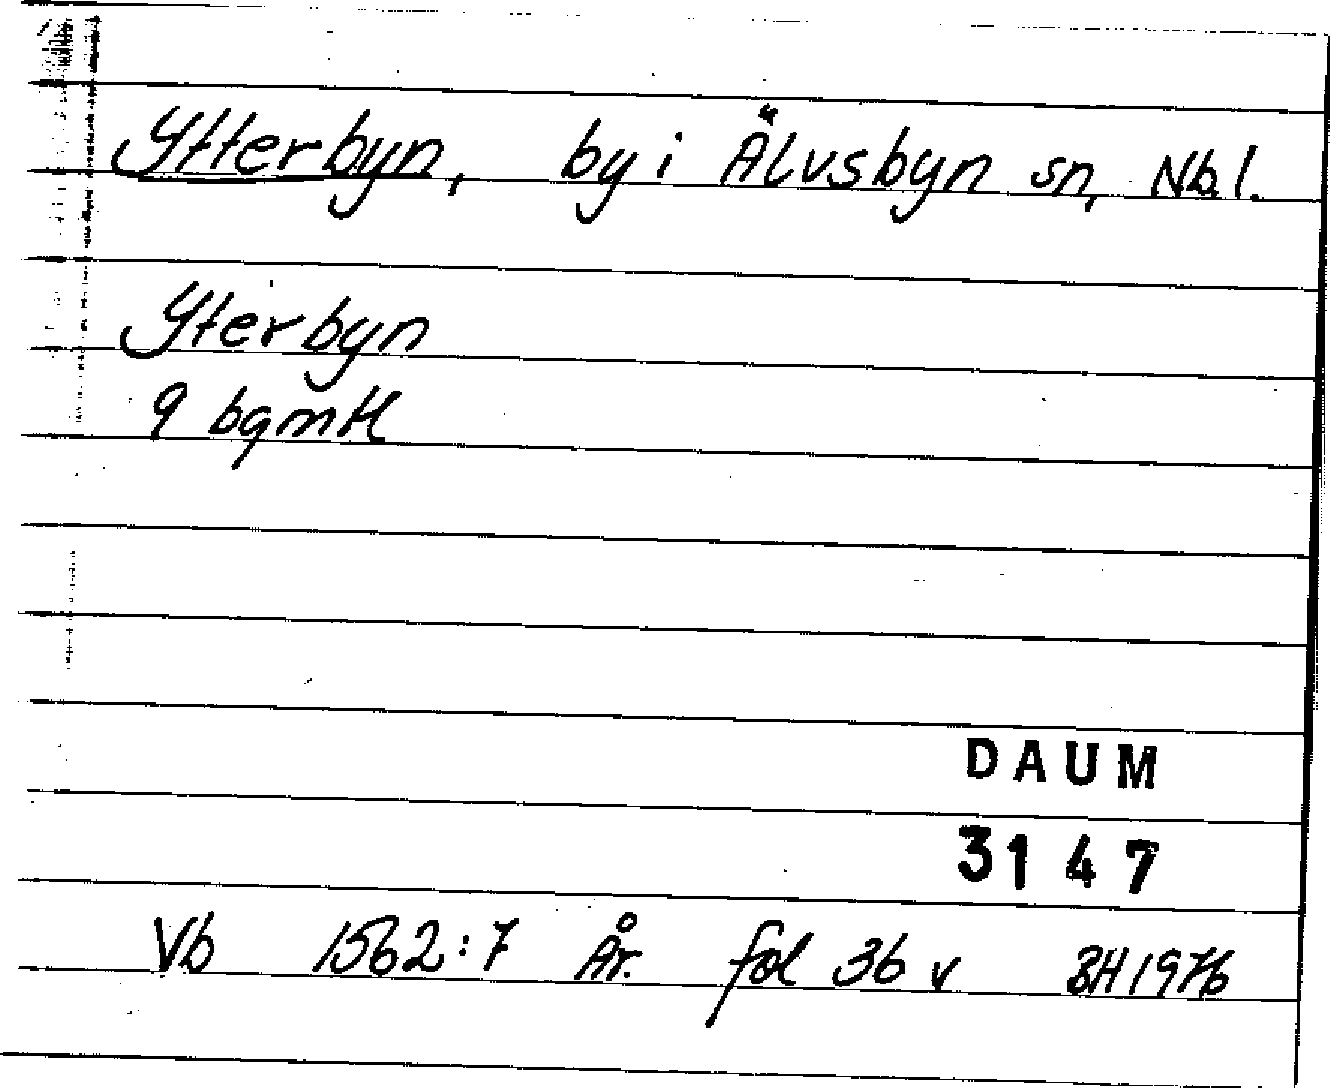 Ytterbyn, by i Älvsbyn sn, Nb.l.
Yterbyn
9 bqmtl
DAUM
3147
Vb 1562:7 År. fol 36 v BH 1976